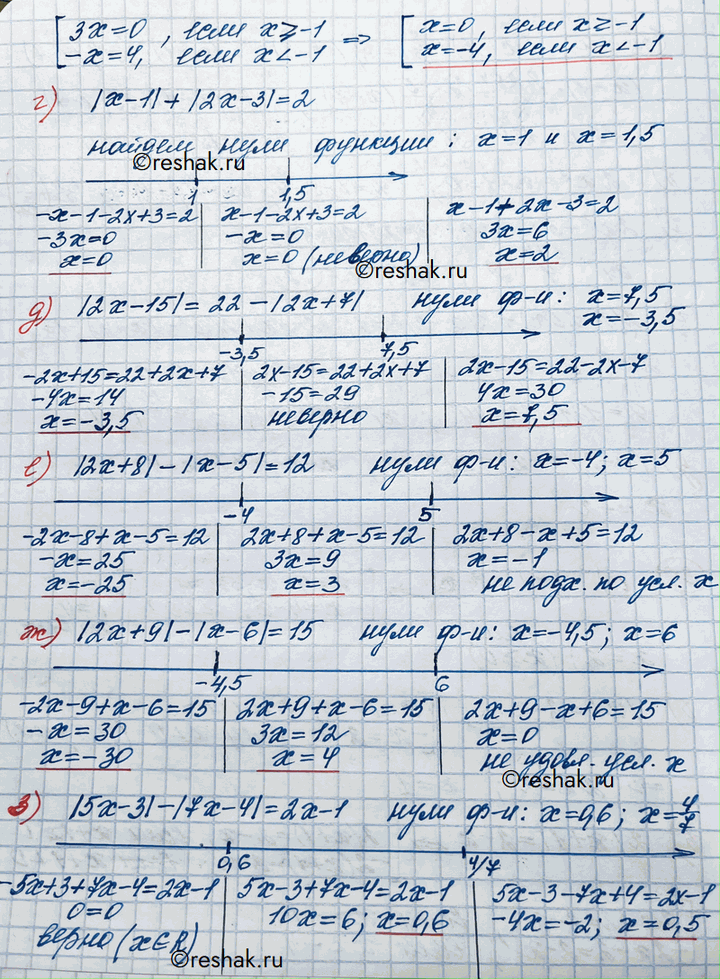 3x=0, если x⩾-1 => x=0, если x⩾-1
-x=4, если x<-1 x=-4, если x<-1
г) |x-1|+|2x-3|=2
найдем нули функции: x=1 и x=1,5
©reshak.ru
1 1,5
-x-1-2x+3=2 x-1-2x+3=2 x-1+2x-3=2
-3x=0 -x=0 3x=6
x=0 x=0 (неверно) x=2
©reshak.ru
д) |2x-15|=22-|2x+7| нули ф-и: x=7,5
x=-3,5
-3,5 7,5
-2x+15=22+2x+7 2x-15=22+2x+7 2x-15=22-2x-7
-4x=14 -15=29 4x=30
x=-3,5 неверно x=7,5
е) |2x+8|-|x-5|=12 нули ф-и: x=-4; x=5
-4 5
-2x-8+x-5=12 2x+8+x-5=12 2x+8-x+5=12
-x=25 3x=9 x=-1
x=-25 x=3 не подх. по усл. x
ж) |2x+9|-|x-6|=15 нули ф-и: x=-4,5; x=6
-4,5 6
-2x-9+x-6=15 2x+9+x-6=15 2x+9-x+6=15
-x=30 3x=12 x=0
x=-30 x=4 не удовл. усл. x
©reshak.ru
з) |5x-3|-|7x-4|=2x-1 нули ф-и: x=0,6; x=4/7
0,6 4/7
-5x+3+7x-4=2x-1 5x-3+7x-4=2x-1 5x-3-7x+4=2x-1
0=0 10x=6; x=0,6 -4x=-2; x=0,5
верно (x∈R)
©reshak.ru